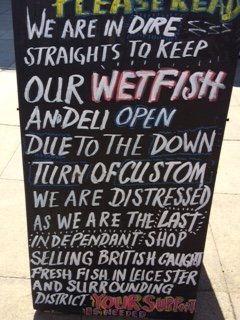 PLEASE READ
WE ARE IN DIRE
STRAIGHTS TO KEEP
OUR WETFISH
AND DELI OPEN
DUE TO THE DOWN
TURN OF CUSTOM
WE ARE DISTRESSED
AS WE ARE THE LAST
INDEPENDANT SHOP
SELLING BRITISH CAUGHT
FRESH FISH IN LEICESTER
AND SURROUNDING
DISTRICT YOUR SUPPORT
IS NEEDED